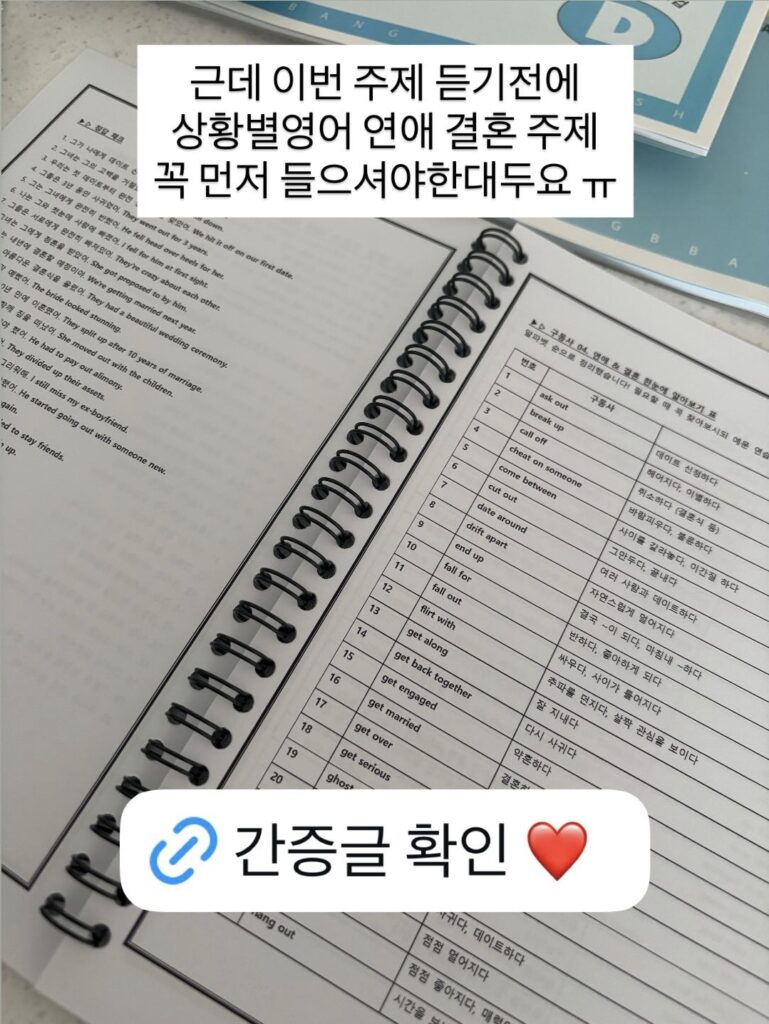 근데 이번 주제 듣기전에
상황별영어 연애 결혼 주제
꼭 먼저 들으셔야한대두요 ㅠ
D
B A N G
S H
G B B A
▶▷ 정답 체크
1. 그가 나에게 데이트
2. 그녀는 그의 고백을 거절
down.
3. 우리는 첫 데이트부터 완전
We hit it off on our first date.
4. 그들은 3년 동안 사귀었어. They went out for 3 years.
5. 그는 그녀에게 완전히 반했어. He fell head over heels for her.
6. 나는 그와 첫눈에 사랑에 빠졌어. I fell for him at first sight.
7. 그들은 서로에게 완전히 빠져있어. They're crazy about each other.
그녀는 그에게 청혼을 받았어. She got proposed to by him.
내년에 결혼할 예정이야. We're getting married next year.
아름다운 결혼식을 올렸어. They had a beautiful wedding ceremony.
The bride looked stunning.
년 만에 이혼했어. They split up after 10 years of marriage.
함께 집을 떠났어. She moved out with the children.
했어. He had to pay out alimony.
They divided up their assets.
그리워해. I still miss my ex-boyfriend.
He started going out with someone new.
again.
ed to stay friends.
up.
▶▷ 구동사 04. 연애 & 결혼 한눈에 알아보기 표
알파벳 순으로 정리했습니다! 필요할 때 꼭 찾아보시되 예문 연습
번호 구동사
1 ask out 데이트 신청하다
2 break up 헤어지다, 이별하다
3 call off 취소하다 (결혼식 등)
4 cheat on someone 바람피우다, 불륜하다
5 come between 사이를 갈라놓다, 이간질 하다
6 cut out 그만두다, 끝내다
7 date around 여러 사람과 데이트하다
8 drift apart 자연스럽게 멀어지다
9 end up 결국 ~이 되다, 마침내 ~하다
10 fall for 반하다, 좋아하게 되다
11 fall out 싸우다, 사이가 틀어지다
12 flirt with 추파를 던지다, 살짝 관심을 보이다
13 get along 잘 지내다
14 get back together 다시 사귀다
15 get engaged 약혼하다
16 get married
17 get over
18 get serious
19 ghost
20
간증글 확인 ❤️
hang out
사귀다, 데이트하다
점점 멀어지다
점점 좋아지다, 매력
시간을